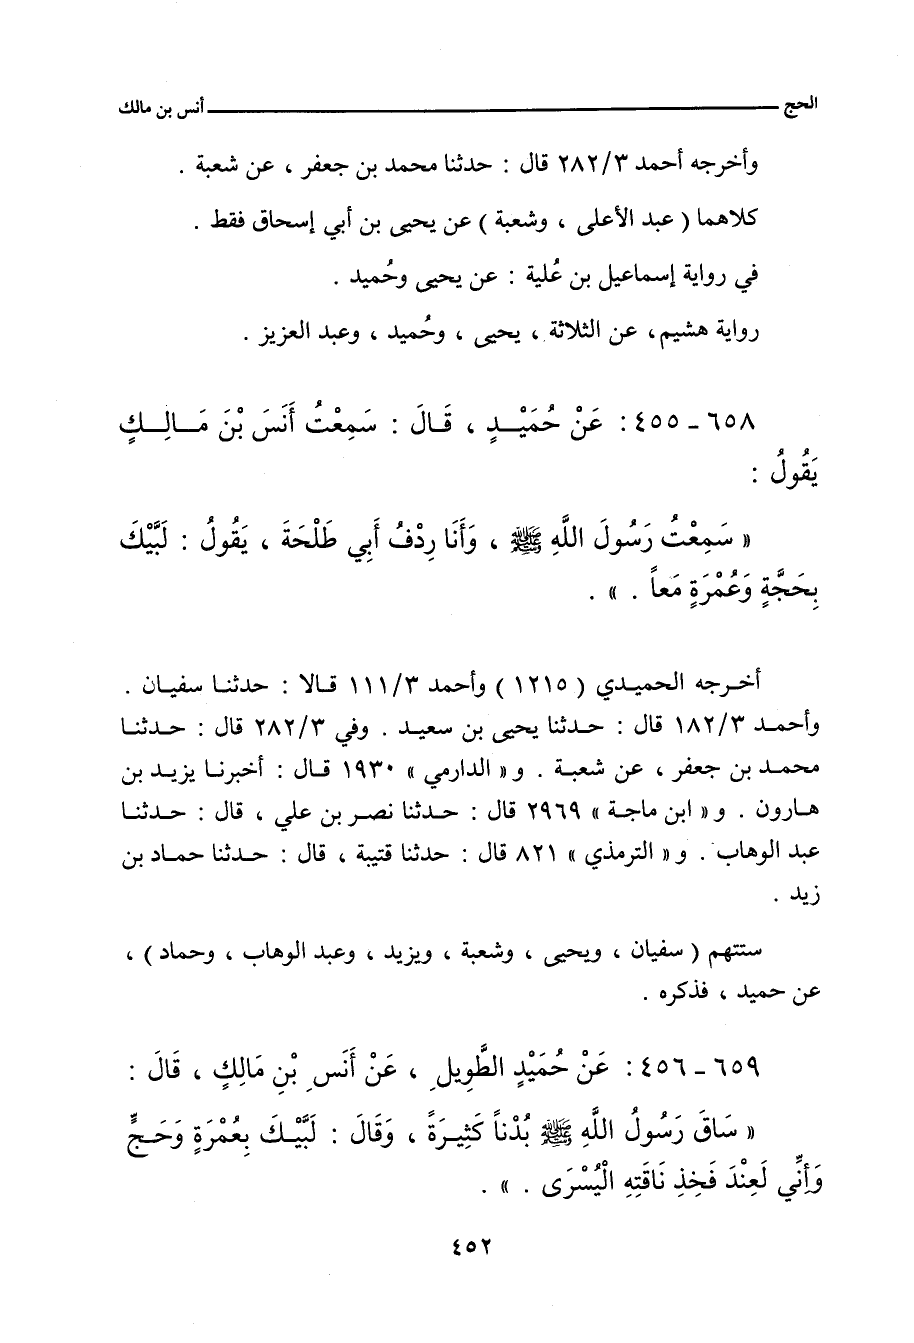 الحج ــــــــــــــــــــ أنس بن مالك
وأخرجه أحمد ٢٨٢/٣ قال : حدثنا محمد بن جعفر ، عن شعبة .
كلاهما ( عبد الأعلى ، وشعبة ) عن يحيى بن أبي إسحاق فقط .
في رواية إسماعيل بن عُلية : عن يحيى وحُميد .
رواية هشيم، عن الثلاثة ، يحيى ، وحُميد ، وعبد العزيز .
٦٥٨ ـ ٤٥٥ : عَنْ حُمَيْـــدٍ ، قَـالَ : سَمِعْتُ أَنَسَ بْنَ مَـــالِـــكٍ
يَقُولُ :
« سَمِعْتُ رَسُولَ اللَّهِ ﷺ ، وَأَنَا رِدْفُ أَبِي طَلْحَةَ ، يَقُولُ : لَبَّيْكَ
بِحَجَّةٍ وَعُمْرَةٍ مَعاً . » .
أخـرجه الحميدي ( ١٢١٥ ) وأحمد ١١١/٣ قـالا : حدثنـا سفيان .
وأحمـد ١٨٢/٣ قال : حـدثنا يحيى بن سعيـد . وفي ٢٨٢/٣ قال : حـدثنـا
محمـد بن جعفر ، عن شعبـة . و« الدارمي » ١٩٣٠ قـال : أخبرنـا يزيـد بن
هـارون . و« ابن ماجـة » ٢٩٦٩ قال : حـدثنا نصـر بن علي ، قال : حـدثنـا
عبد الوهاب . و« الترمذي » ٨٢١ قال : حدثنا قتيبة ، قال : حـدثنا حمـاد بن
زيد .
ستتهم ( سفيان ، ويحيى ، وشعبة ، ويزيد ، وعبد الوهاب ، وحماد ) ،
عن حميد ، فذكره .
٦٥٩ ـ ٤٥٦ : عَنْ حُمَيْدٍ الطَّوِيلِ ، عَنْ أَنَسِ بْنِ مَالِكٍ ، قَالَ :
« سَاقَ رَسُولُ اللَّهِ ﷺ بُدْناً كَثِيـرَةً ، وَقَالَ : لَبَّيْـكَ بِعُمْرَةٍ وَحَـجٍّ
وَإِنِّي لَعِنْدَ فَخِذِ نَاقَتِهِ الْيُسْرَى . » .
٤٥٢